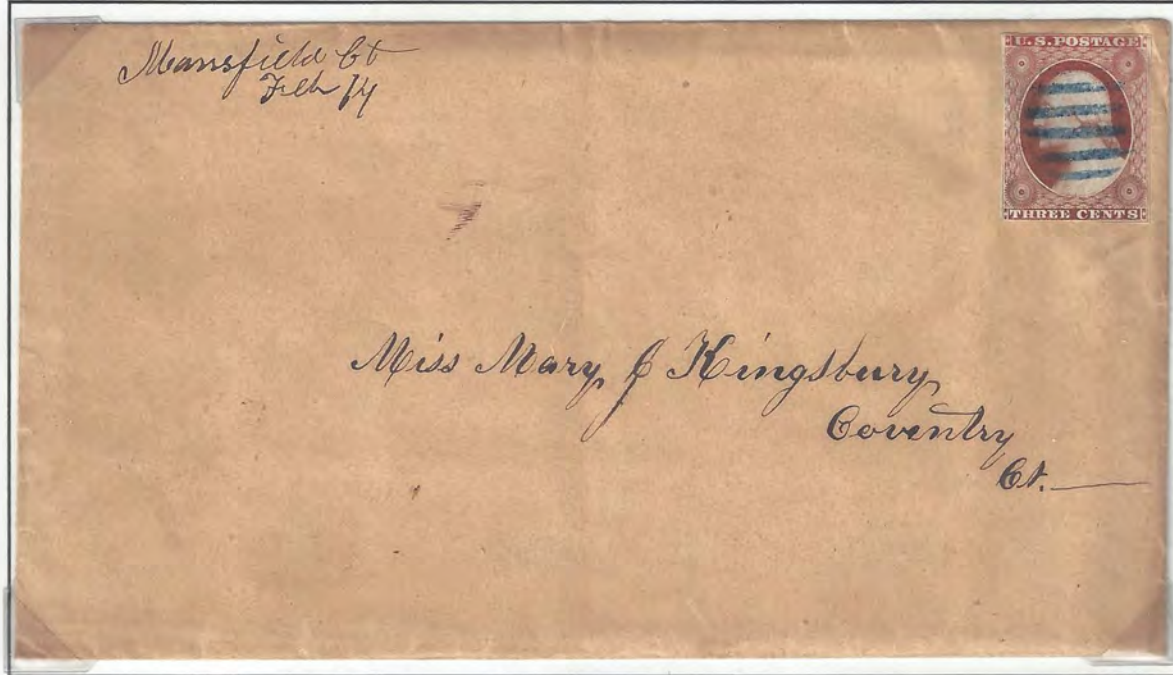 Mansfield Ct
Feb 14
U.S. POSTAGE
THREE CENTS
Miss Mary J Kingsbury
Coventry
Ct.